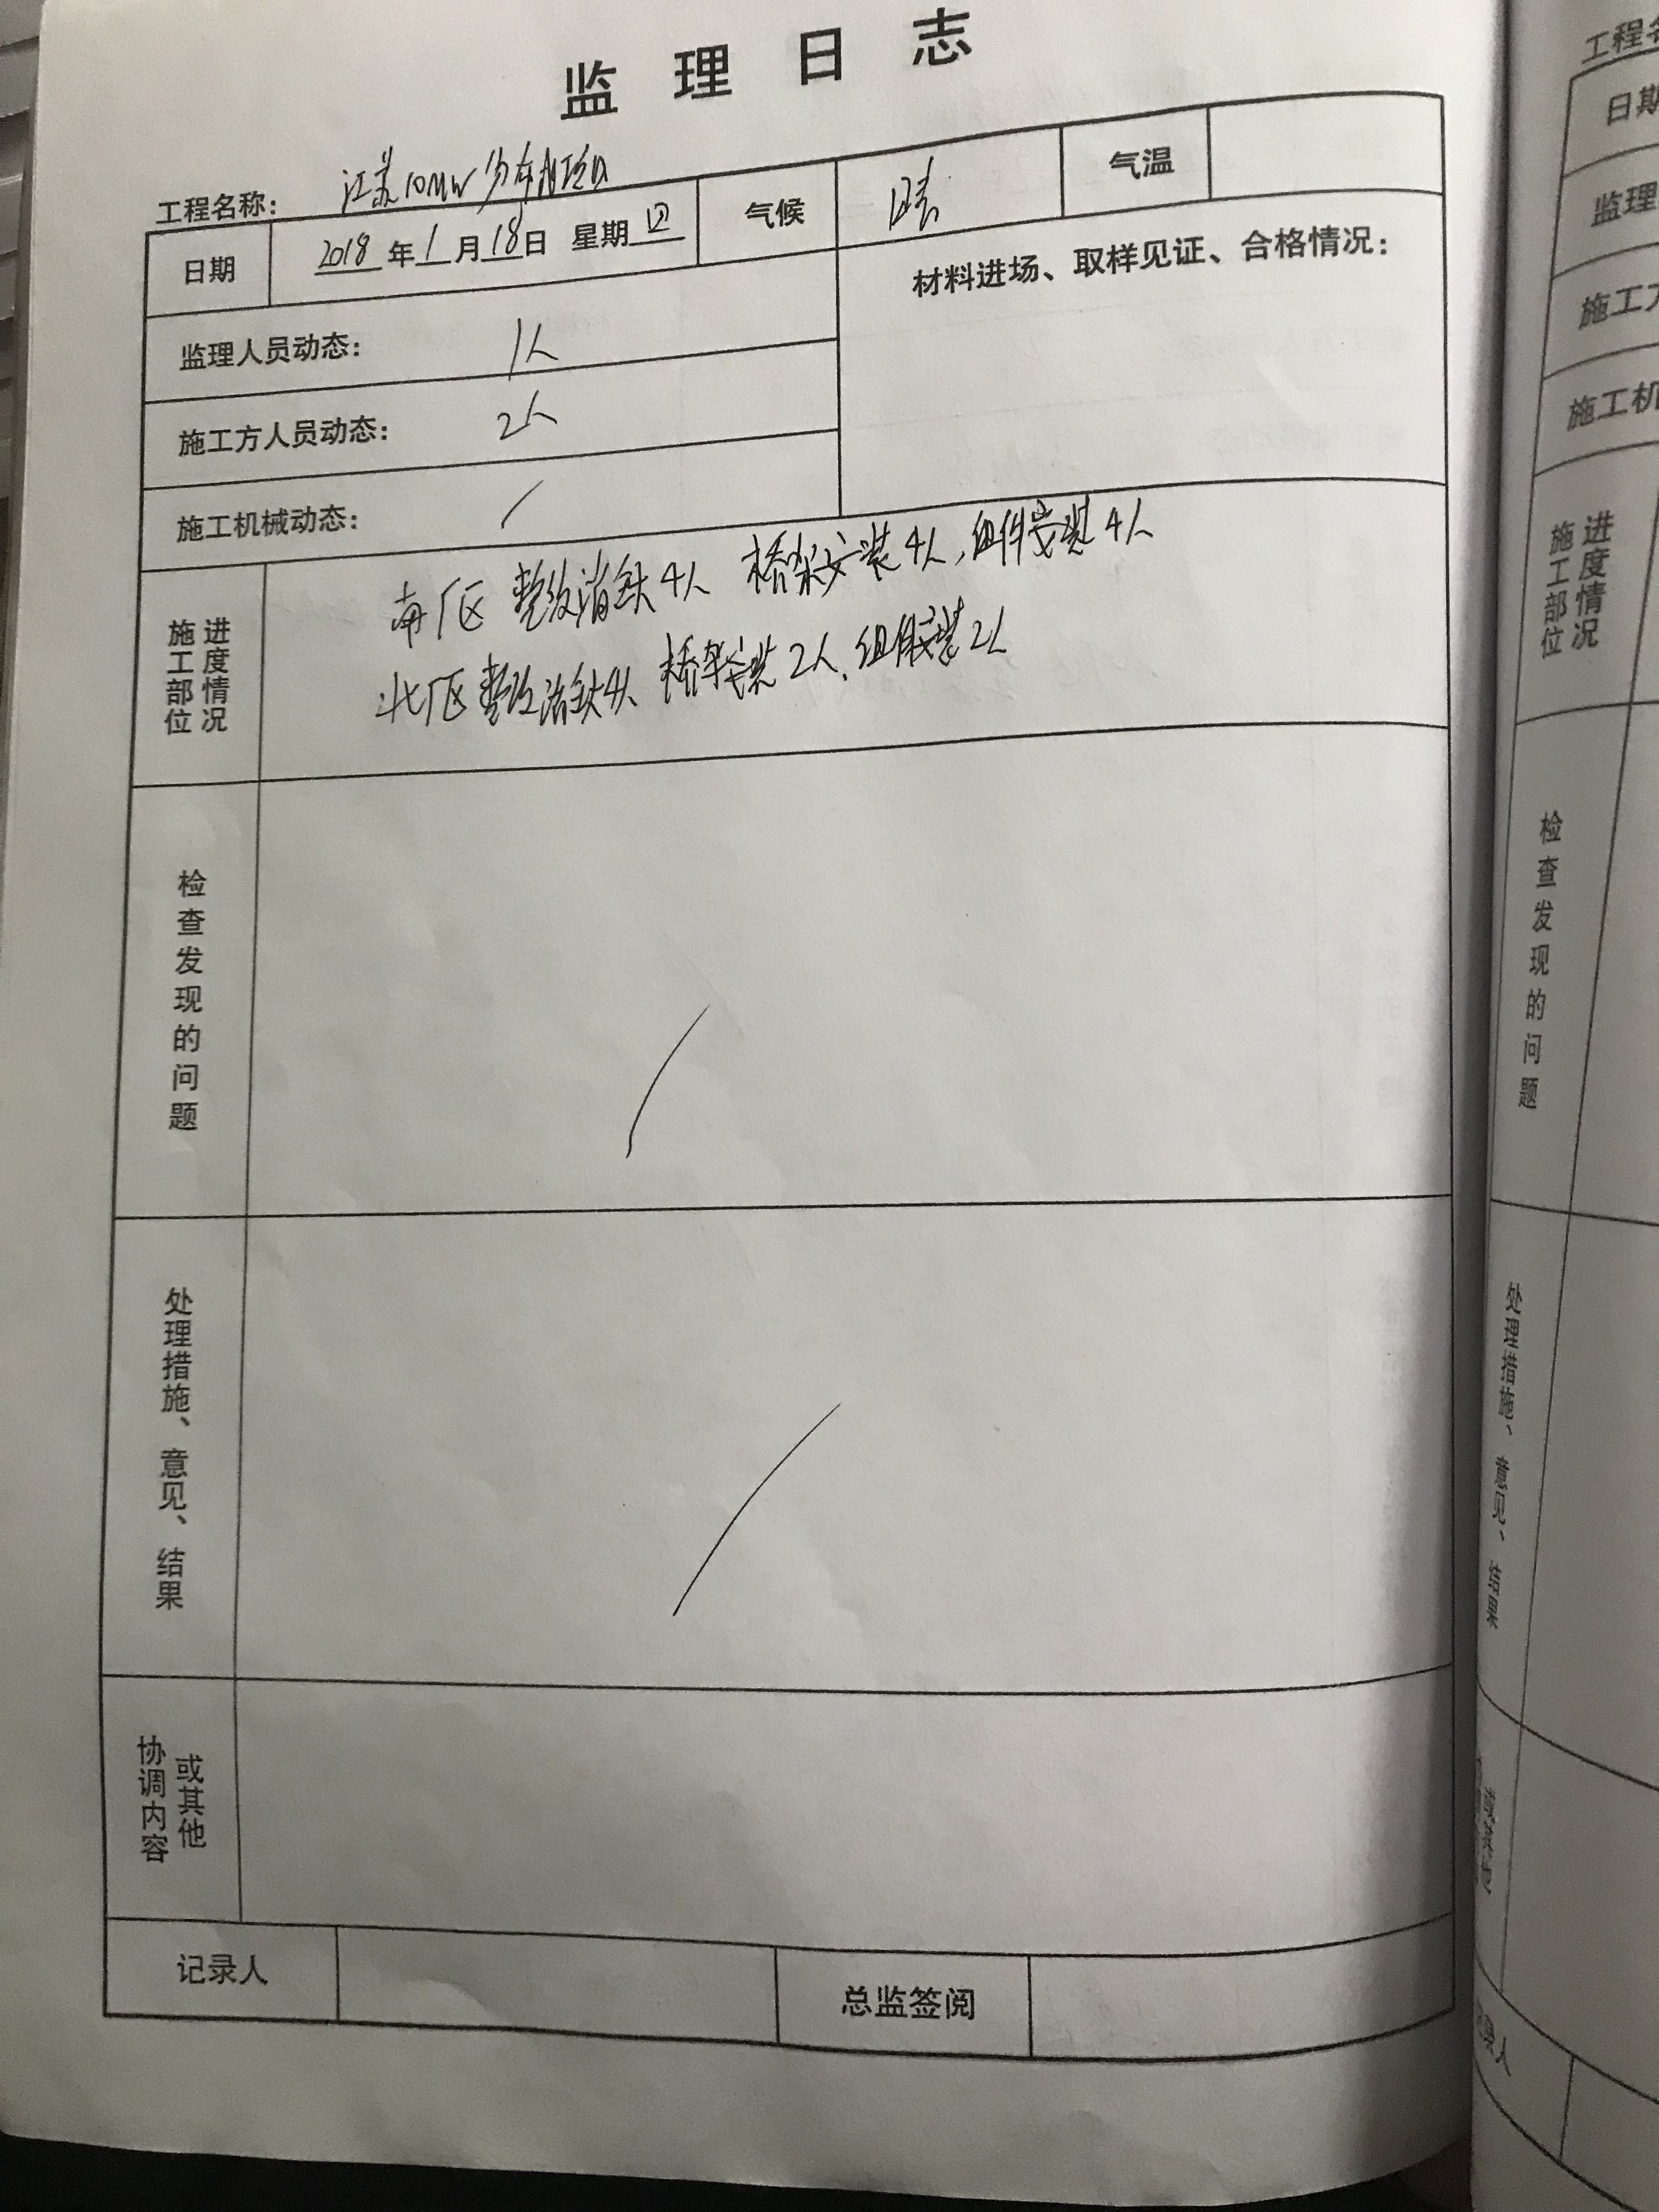 监理日志
工程名称： 江苏10MW分布式项目
日期 2018年1月18日 星期四 气候 晴 气温
监理人员动态： 1人
材料进场、取样见证、合格情况：
施工方人员动态： 2人
施工机械动态： /
施工部位进度情况
南厂区 整改消缺4人 桥架安装4人，组件安装4人
北厂区整改消缺4人 桥架安装2人，组件安装2人
检查发现的问题
/
处理措施、意见、结果
/
协调内容或其他
记录人 总监签阅
工程名
日期
监理
施工方
施工机
施工部位进度情况
检查发现的问题
处理措施、意见、结果